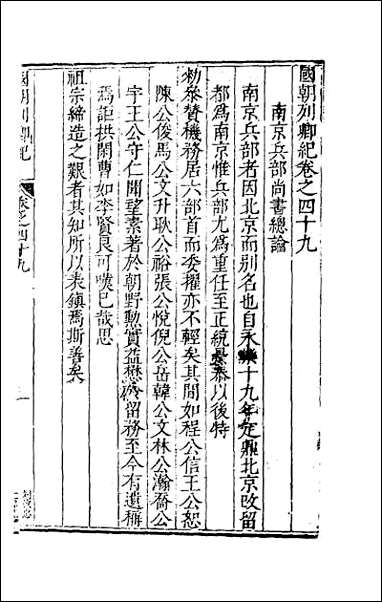 國朝列卿紀卷之四十九
南京兵部尚書總論
南京兵部者因北京而别名也自永樂十九年定鼎北京改留
都爲南京惟兵部尤爲重任至正統景泰以後特
勑叅贊機務居六部首而委擢亦不輕矣其間如程公信王公恕
陳公俊馬公文升耿公裕張公悅倪公岳韓公文林公瀚喬公
宇王公守仁聞望素著於朝野勲實益懋於留務至今有遺稱
焉詎拱閑曹如李賢良可嘆已哉思
祖宗締造之艱者其知所以表鎮焉斯善矣
國朝列卿紀
卷之四十九